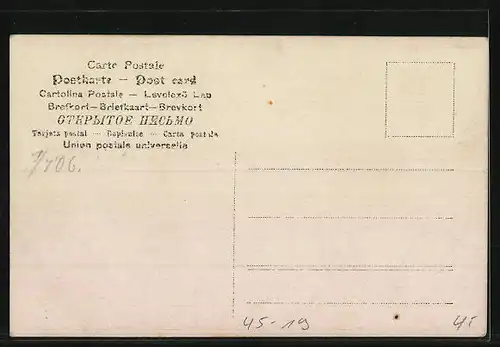 Carte Postale
Postkarte — Post card
Cartolina Postale — Levelező Lap
Brefkort—Briefkaart—Brevkort
ОТКРЫТОЕ ПИСЬМО
Tarjeta postal — Dopisnice — Carta postale
Union postale universelle
45-19
45